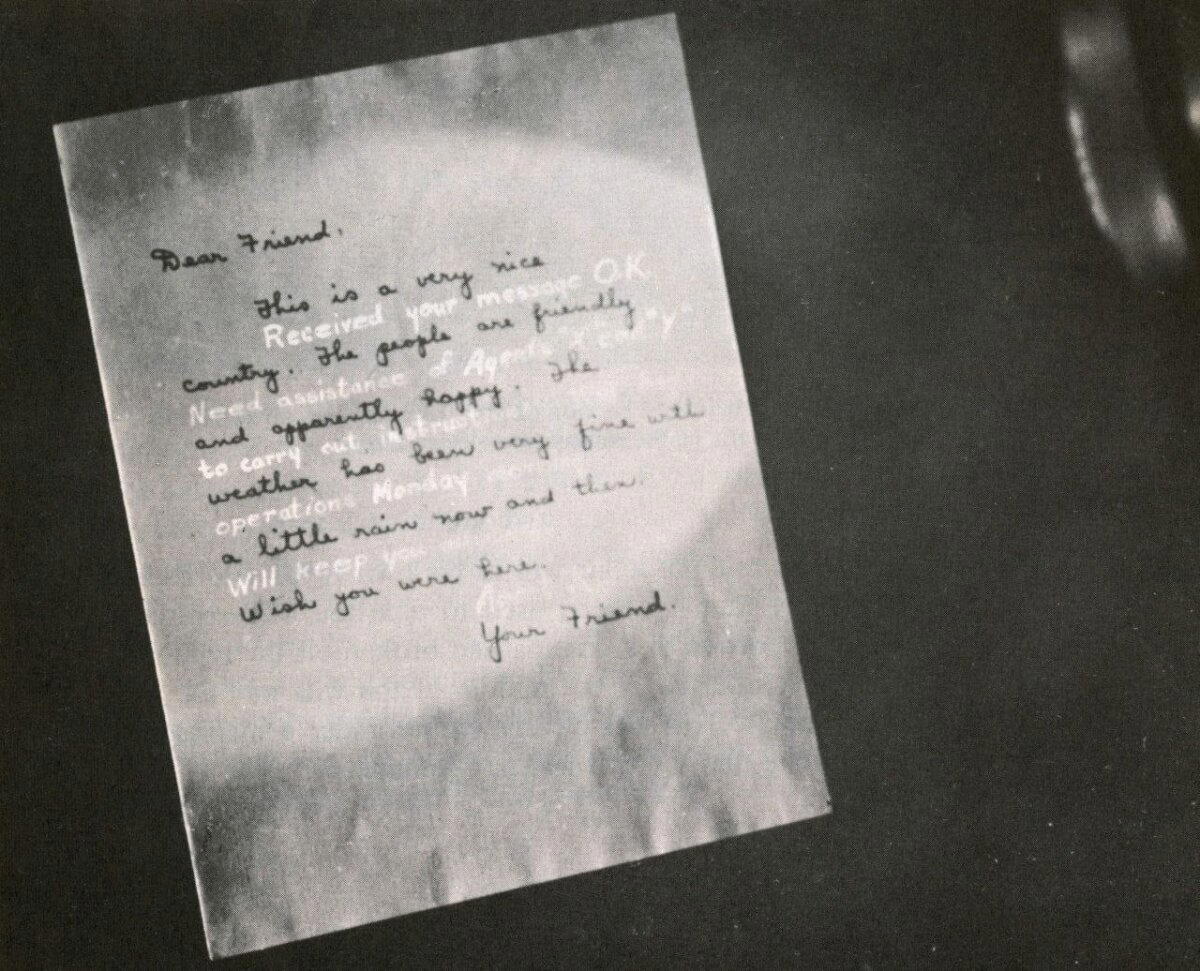 Dear Friend.
This is a very nice
Received your message O.K.
country. The people are friendly
Need assistance of Agents "X" and "Y"
and apparently happy. The
to carry out
weather has been very fine with
operations Monday
a little rain now and then.
Will keep you
Wish you were here.
Your Friend.